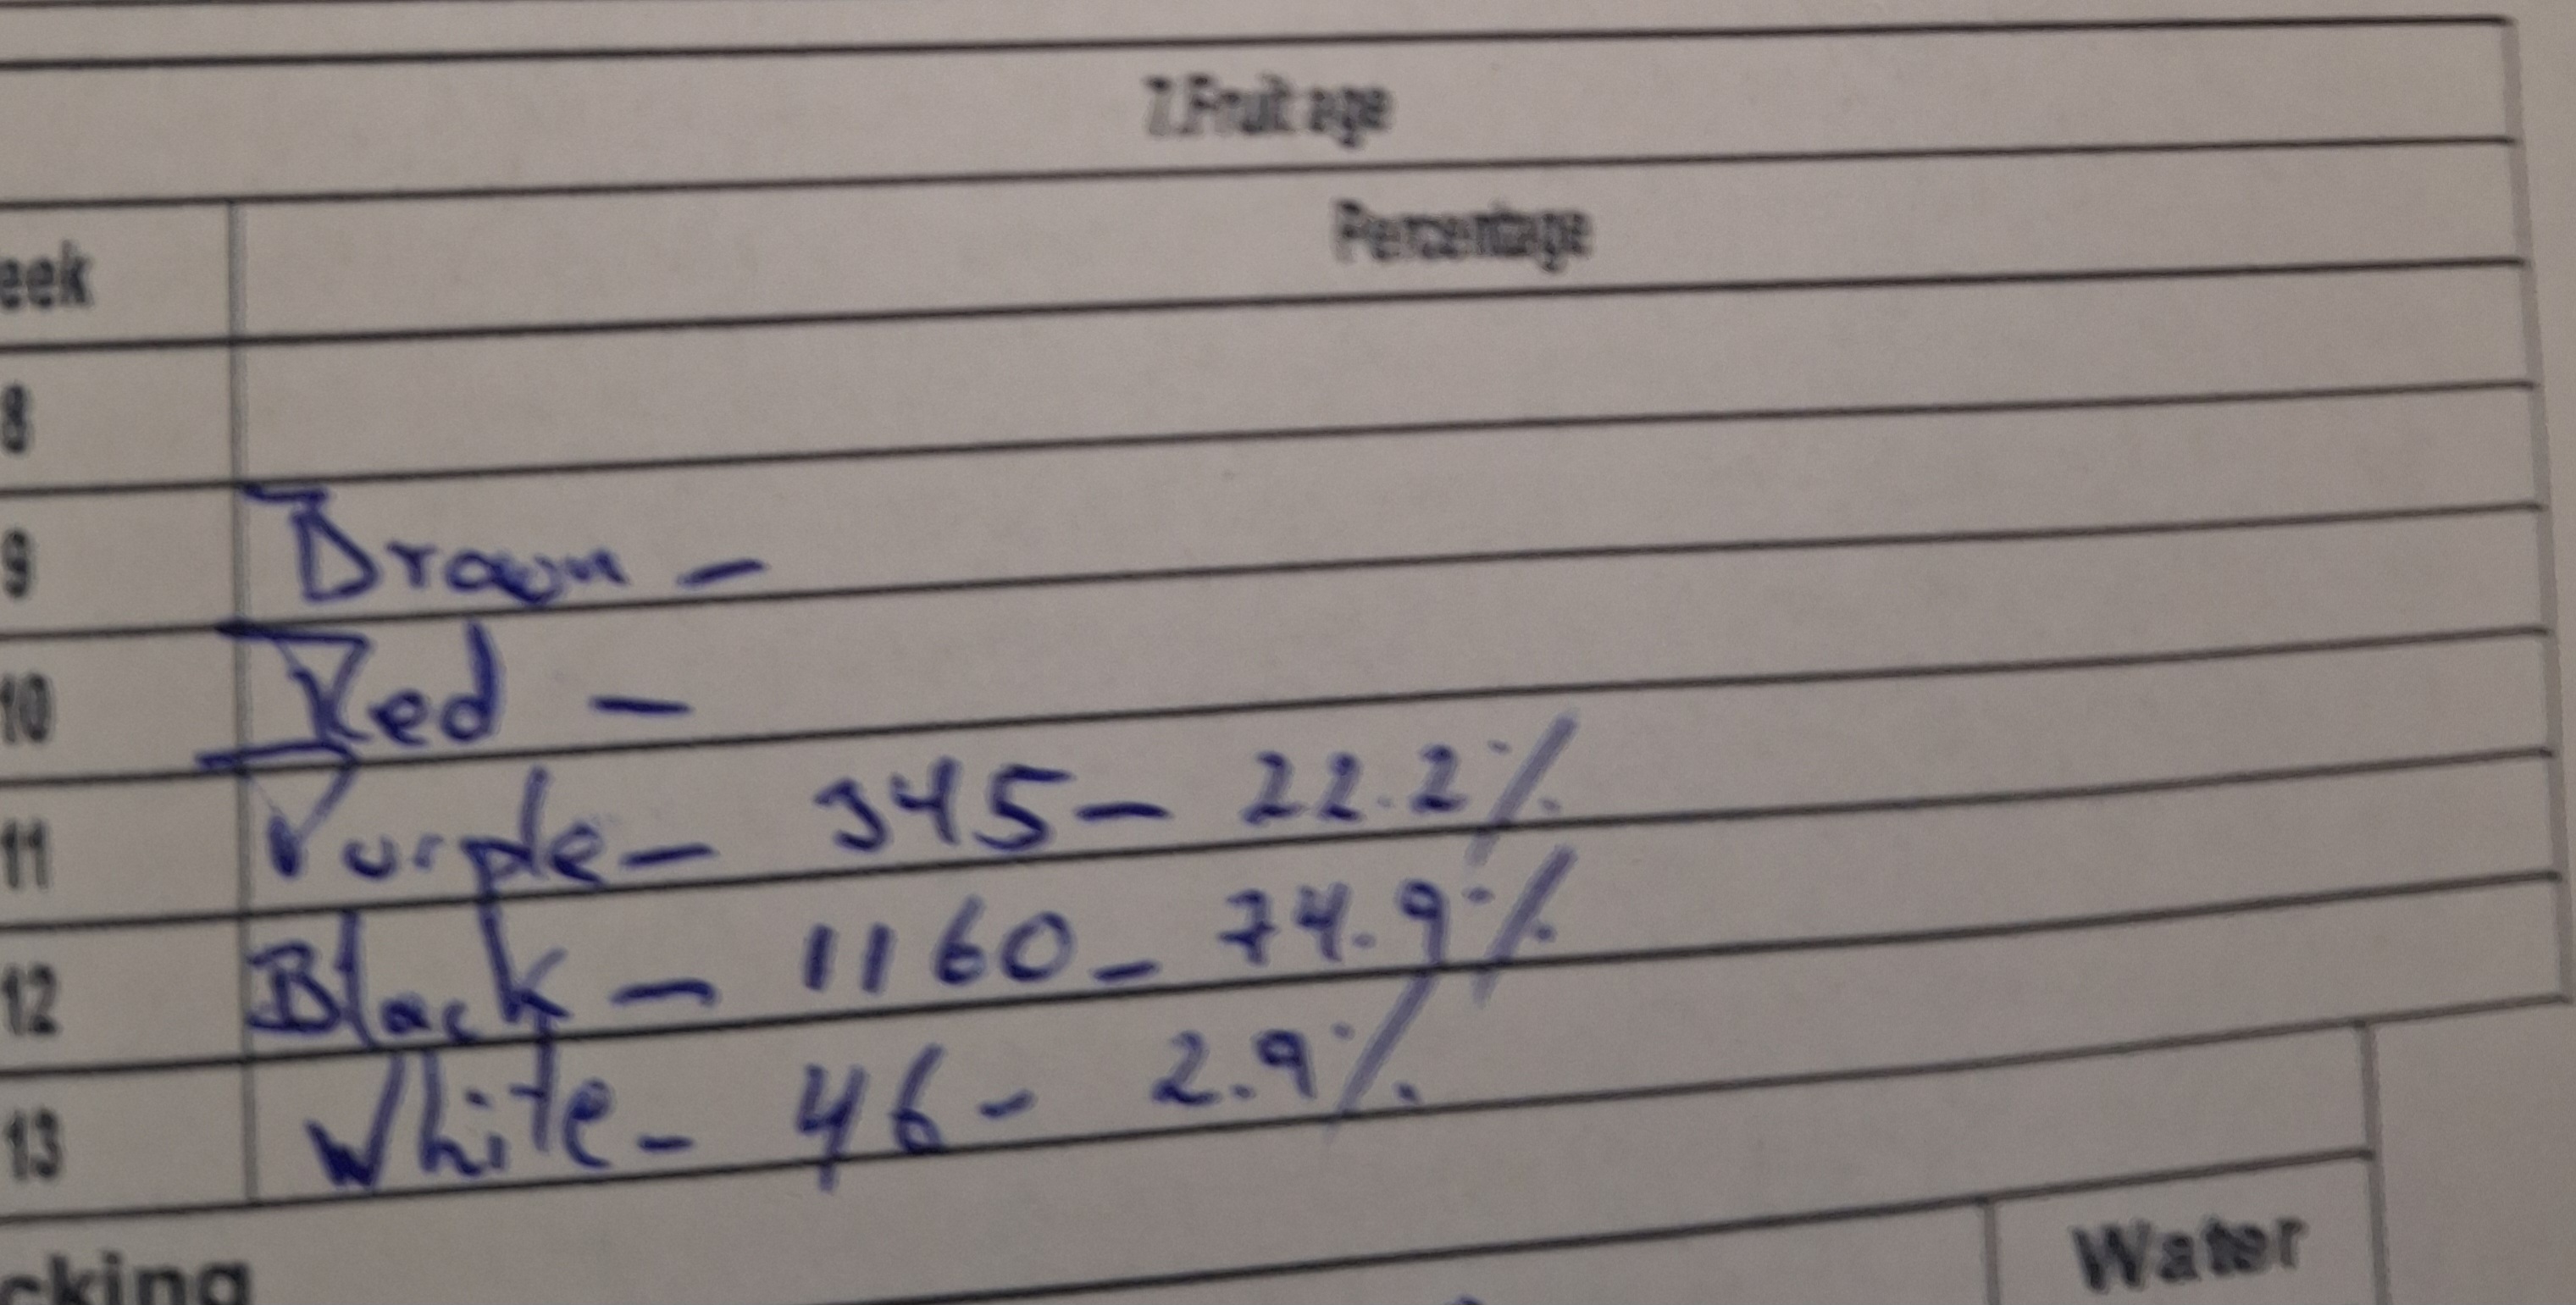 7.Fruit age
eek Percentage
8
9 Brown -
10 Red -
11 Purple - 345 - 22.2%
12 Black - 1160 - 74.9%
13 White - 46 - 2.9%
cking Water